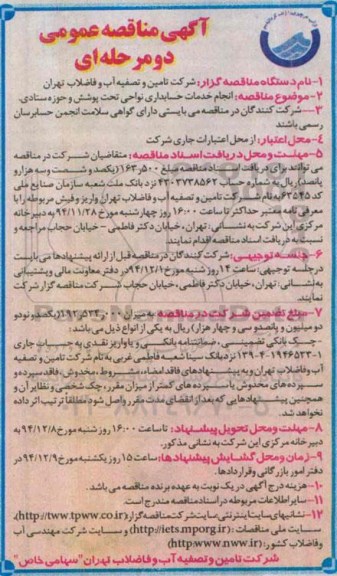 آگهی مناقصه عمومی
دو مرحله ای
۱-نام دستگاه مناقصه گزار: شرکت تامین و تصفیه آب و فاضلاب تهران
۲-موضوع مناقصه: انجام خدمات حسابداری نواحی تحت پوشش و حوزه ستادی.
۳-شرکت کنندگان در مناقصه می بایستی دارای گواهی سلامت انجمن حسابرسان
رسمی باشند
۴-محل اعتبار: از محل اعتبارات جاری شرکت
۵-مهلت و محل دریافت اسناد مناقصه: متقاضیان شرکت در مناقصه
می توانند برای دریافت اسناد مناقصه مبلغ ۱۶۳٫۵۰۰ (یکصد و شصت و سه هزار و
پانصد) ریال به شماره حساب ۴۳۰۳۷۳۸۵۶۲ نزد بانک ملت شعبه سازمان صنایع ملی
کد ۶۳۵۴۵ به نام شرکت تامین و تصفیه آب و فاضلاب تهران واریز و فیش مربوطه را با
معرفی نامه معتبر حداکثر تا ساعت ۱۶:۰۰ روز چهارشنبه مورخ ۹۴/۱۱/۲۸ به دبیرخانه
مرکزی این شرکت به نشانی: تهران، خیابان دکتر فاطمی - خیابان حجاب مراجعه و
نسبت به دریافت اسناد مناقصه اقدام نمایند.
۶-جلسه توجیهی: شرکت کنندگان در مناقصه قبل از ارائه پیشنهادها می بایست
در جلسه توجیهی: ساعت ۱۴ روز شنبه مورخ ۹۴/۱۲/۱ در دفتر معاونت مالی و پشتیبانی
به نشانی: تهران، خیابان دکتر فاطمی، خیابان حجاب شرکت مناقصه گزار شرکت
نمایند.
۷-مبلغ تضمین شرکت در مناقصه به میزان ۱۹۲٫۵۳۴٫۰۰۰ (یکصد و نود و دو
میلیون و پانصد و سی و چهار هزار) ریال به یکی از انواع ذیل می باشد:
- چک بانکی تضمینی، ضمانتنامه بانکی و یا واریز نقدی به حساب جاری
۱۳۹-۴-۱۹۴۶۵۳۳-۱ نزد بانک سینا شعبه فاطمی غربی به نام شرکت تامین و تصفیه
آب و فاضلاب تهران و به پیشنهادهای فاقد امضاء، مشروط، مخدوش، فاقد سپرده و
سپرده های مخدوش یا سپرده های کمتر از میزان مقرر، چک شخصی و نظایر آن و
همچنین پیشنهادهایی که بعد از انقضای مدت مقرر واصل شود مطلقا ترتیب اثر داده
نخواهد شد.
۸-مهلت و محل تحویل پیشنهاد: تا ساعت ۱۶:۰۰ روز شنبه مورخ ۹۴/۱۲/۸ به
دبیرخانه مرکزی این شرکت به نشانی مذکور.
۹-زمان و محل گشایش پیشنهادها: ساعت ۱۵ روز یکشنبه مورخ ۹۴/۱۲/۹ در
دفتر امور بازرگانی و قراردادها.
۱۰-هزینه درج آگهی در یک نوبت به عهده برنده مناقصه می باشد.
۱۱-سایر اطلاعات مربوطه در اسناد مناقصه مندرج است.
۱۲-نشانیهای سایت اینترنتی سایت شرکت مناقصه گزار (http://tww.tpww.co.ir)،
سایت ملی مناقصات: (http://iets.mporg.ir) و سایت شرکت مهندسی آب
وفاضلاب کشور: (http:www.nww.ir)
شرکت تامین و تصفیه آب و فاضلاب تهران "سهامی خاص"